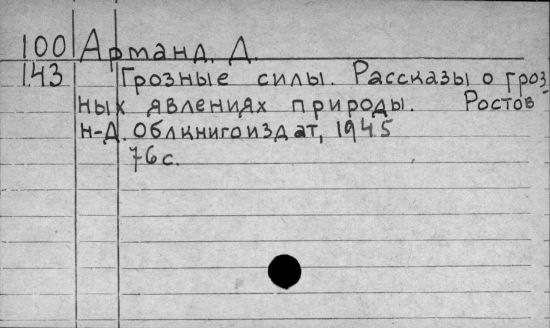 100 Арманд, Д.
143 Грозные силы. Рассказы о гроз-
ных явлениях природы. Ростов
н-Д. Облкнигоиздат, 1945
76 с.